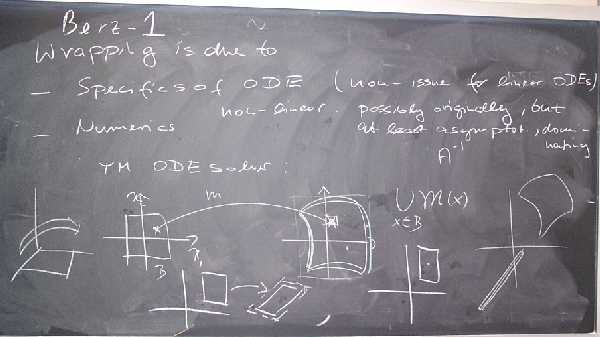 Berz-1
Wrapping is due to
- Specifics of ODE (non-issue for linear ODEs)
- Numerics
non-linear. possibly originally, but
at least asymptot, domi-
nating
A⁻¹
TM ODE solver:
m
B
∪ M(x)
x∈B